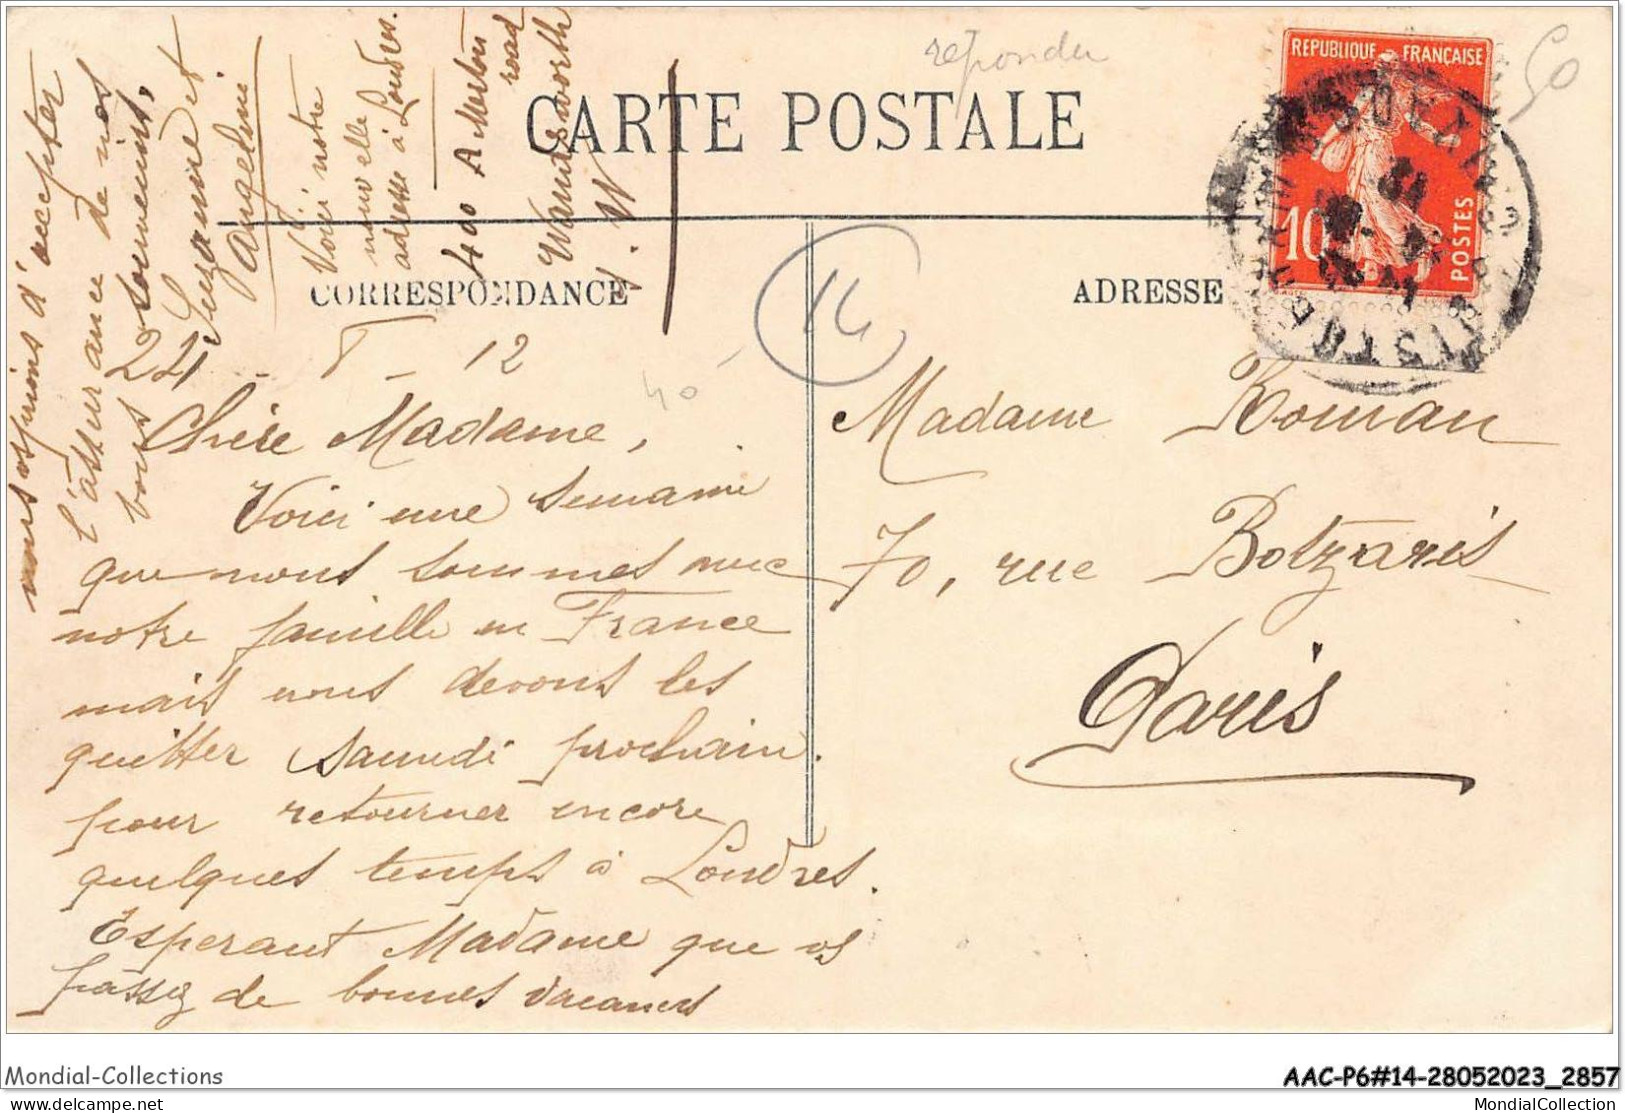 CARTE POSTALE
repondu
REPUBLIQUE FRANÇAISE
10
POSTES
50
CORRESPONDANCE
ADRESSE
14
40
24 - 8 - 12
Chère Madame,
Voici une semaine
que nous sommes avec
notre famille en France
mais nous devons les
quitter samedi prochain.
pour retourner encore
quelques temps à Londres.
Esperant Madame que vs
passez de bonnes vacances
nous osprions d'accepter
l'assurance de nos
bons souvenirs,
Suzanne et
Angeline
Voici notre
nouvelle
adresse à Londres.
400 A Merton
road
Wandsworth
S. W
Madame Roman
70, rue Botzaris
Paris
Mondial-Collections
AAC-P6#14-28052023_2857
delcampe.net
MondialCollection